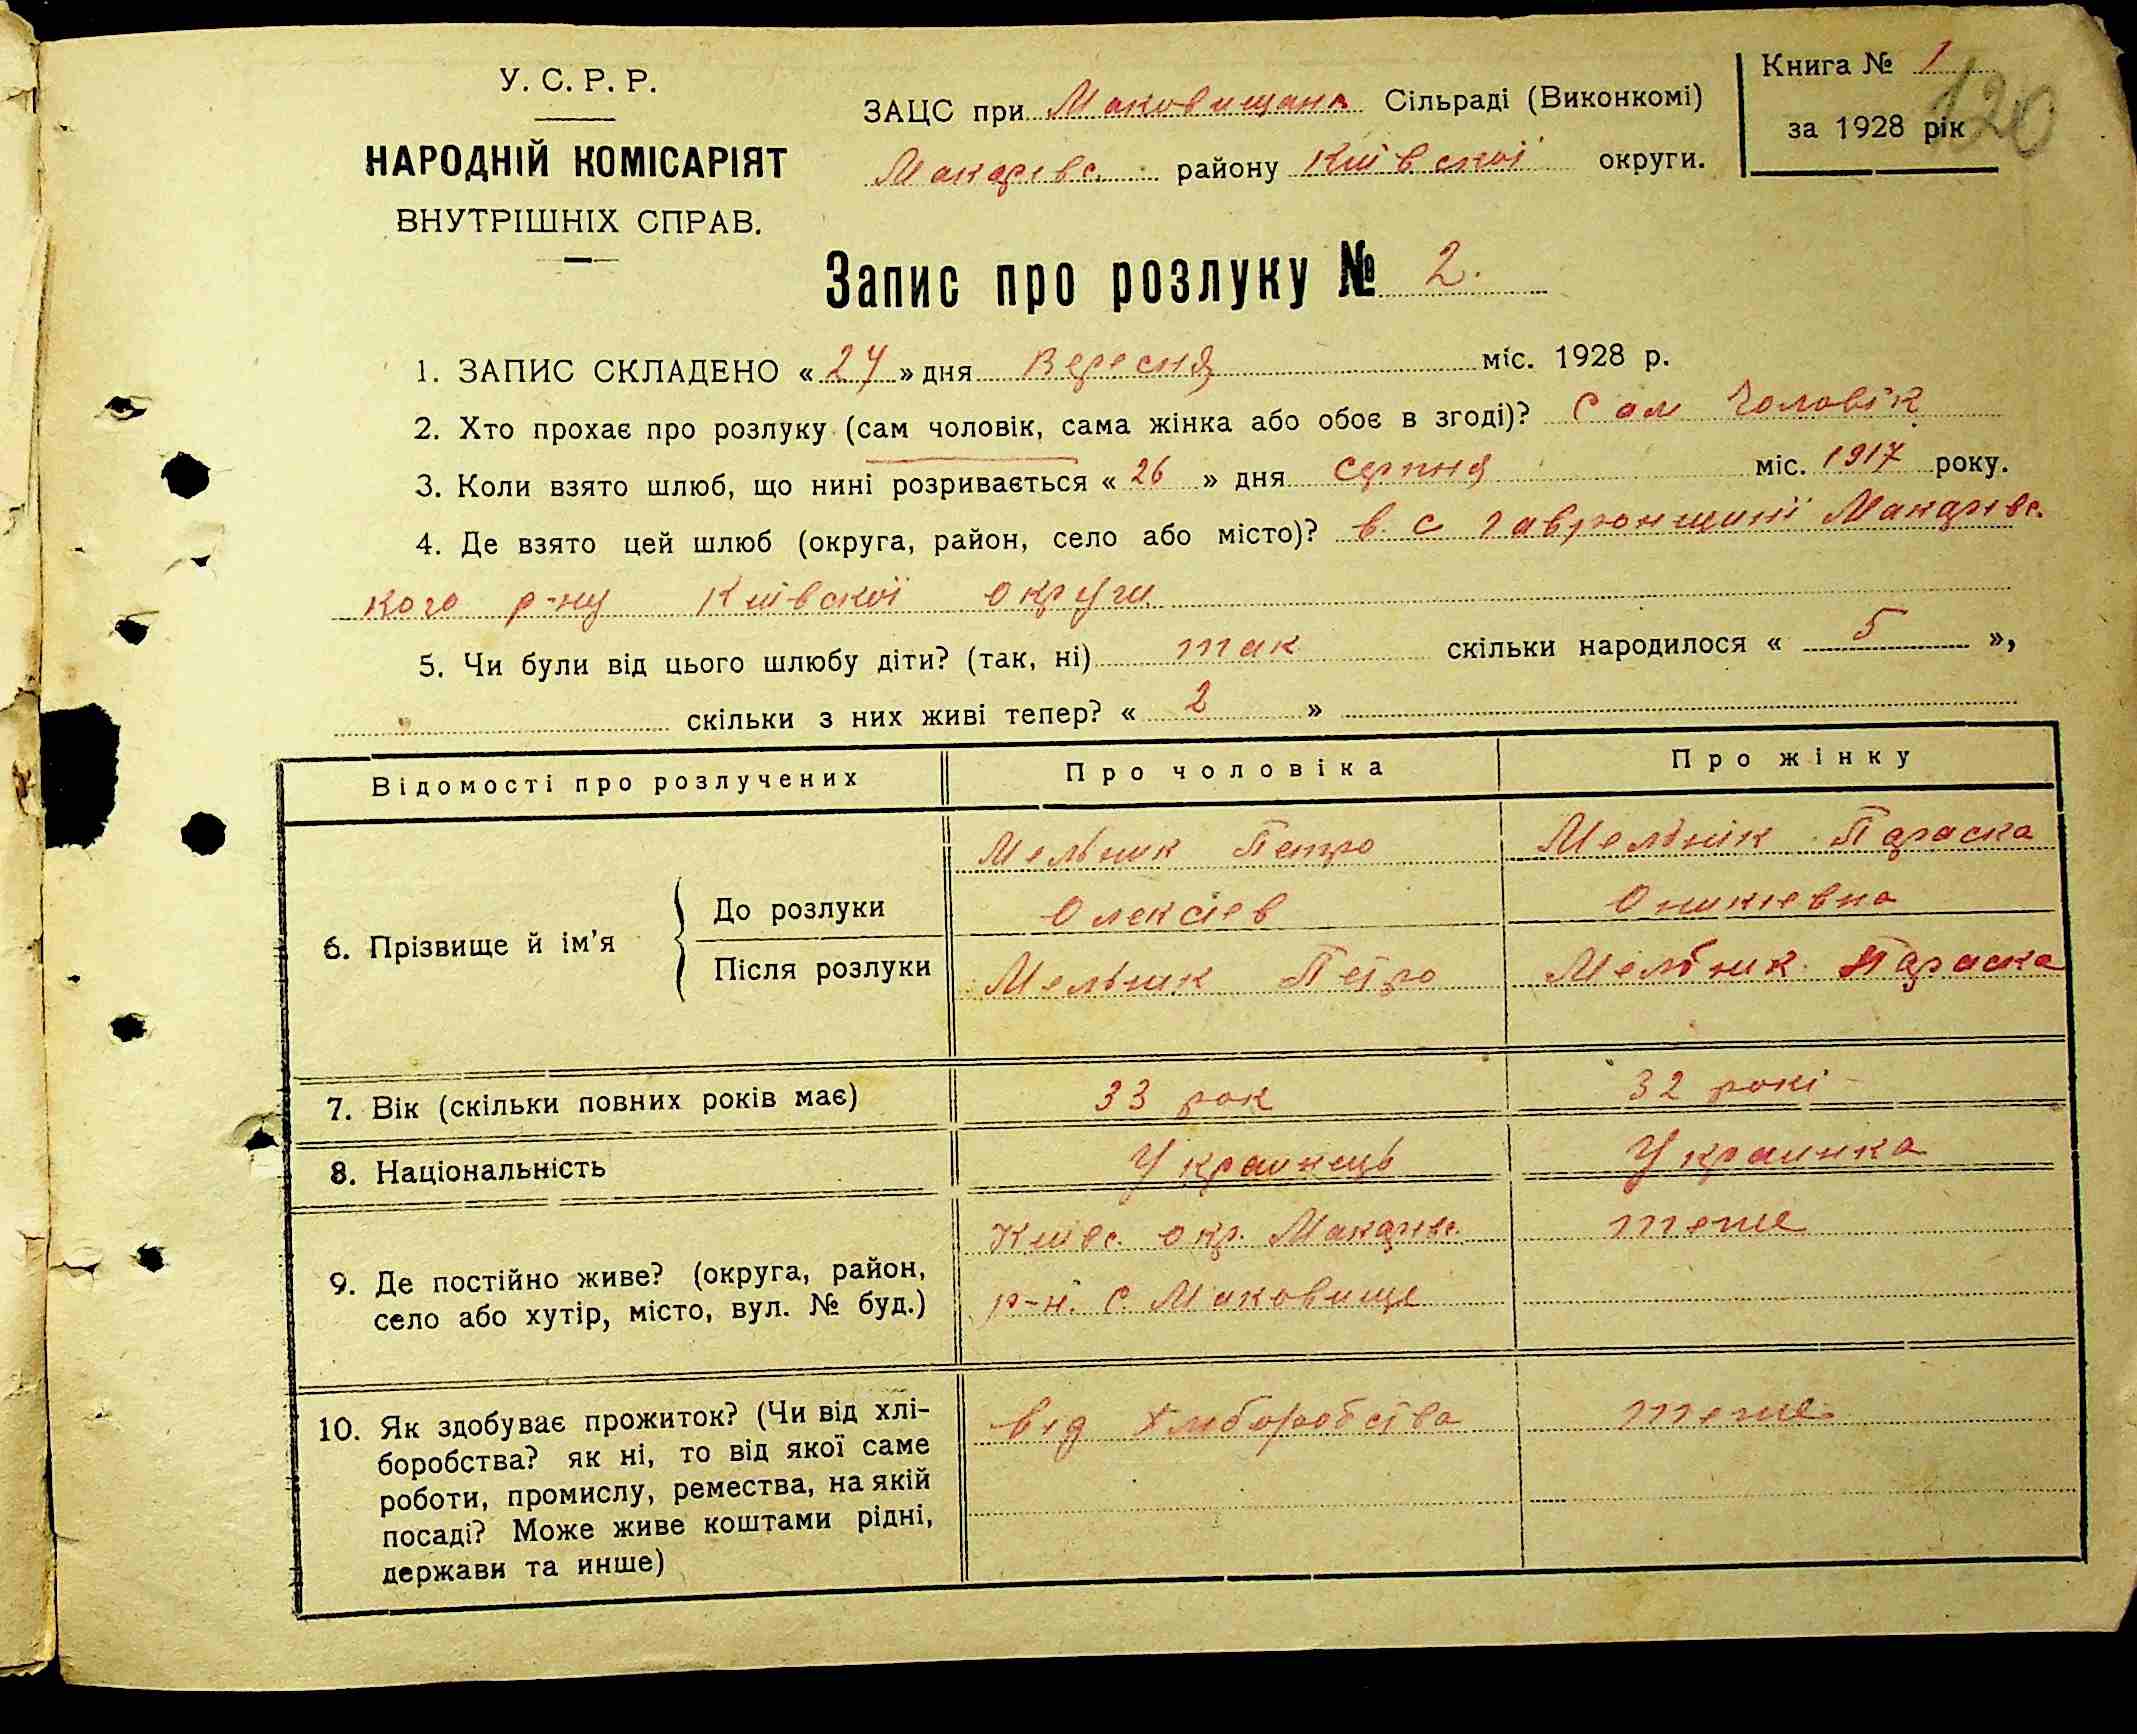 У. С. Р. Р.
НАРОДНІЙ КОМІСАРІЯТ
ВНУТРІШНІХ СПРАВ.
ЗАЦС при Маковищана Сільраді (Виконкомі)
Макарівс. району Київскої округи.
Книга № 1
за 1928 рік
120
Запис про розлуку № 2.
1. ЗАПИС СКЛАДЕНО « 27 » дня Вересня міс. 1928 р.
2. Хто прохає про розлуку (сам чоловік, сама жінка або обоє в згоді)? Сам Чоловік
3. Коли взято шлюб, що нині розривається « 26 » дня Серпня міс. 1917 року.
4. Де взято цей шлюб (округа, район, село або місто)? в. с Гавронщині Макарівс.
кого р-ну Київскої округи
5. Чи були від цього шлюбу діти? (так, ні) так скільки народилося « 5 »,
скільки з них живі тепер? « 2 »
Відомості про розлучених Про чоловіка Про жінку
6. Прізвище й ім'я
До розлуки
Мельник Петро Мельнік Параска
Олексієв Оникіевна
Після розлуки Мельник Петро Мельник Параска
7. Вік (скільки повних років має) 33 рок 32 рокі
8. Національність Украинець Украинка
9. Де постійно живе? (округа, район,
село або хутір, місто, вул. № буд.)
Київс. окр. Макарівс. теше
р-н. с. Маковище
10. Як здобуває прожиток? (Чи від хлі-
боробства? як ні, то від якої саме
роботи, промислу, ремества, на якій
посаді? Може живе коштами рідні,
держави та инше)
від Хліборобства теше